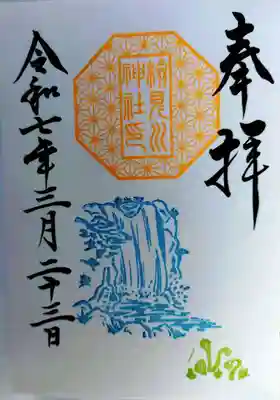 奉拝
神社印
令和七年三月二十三日